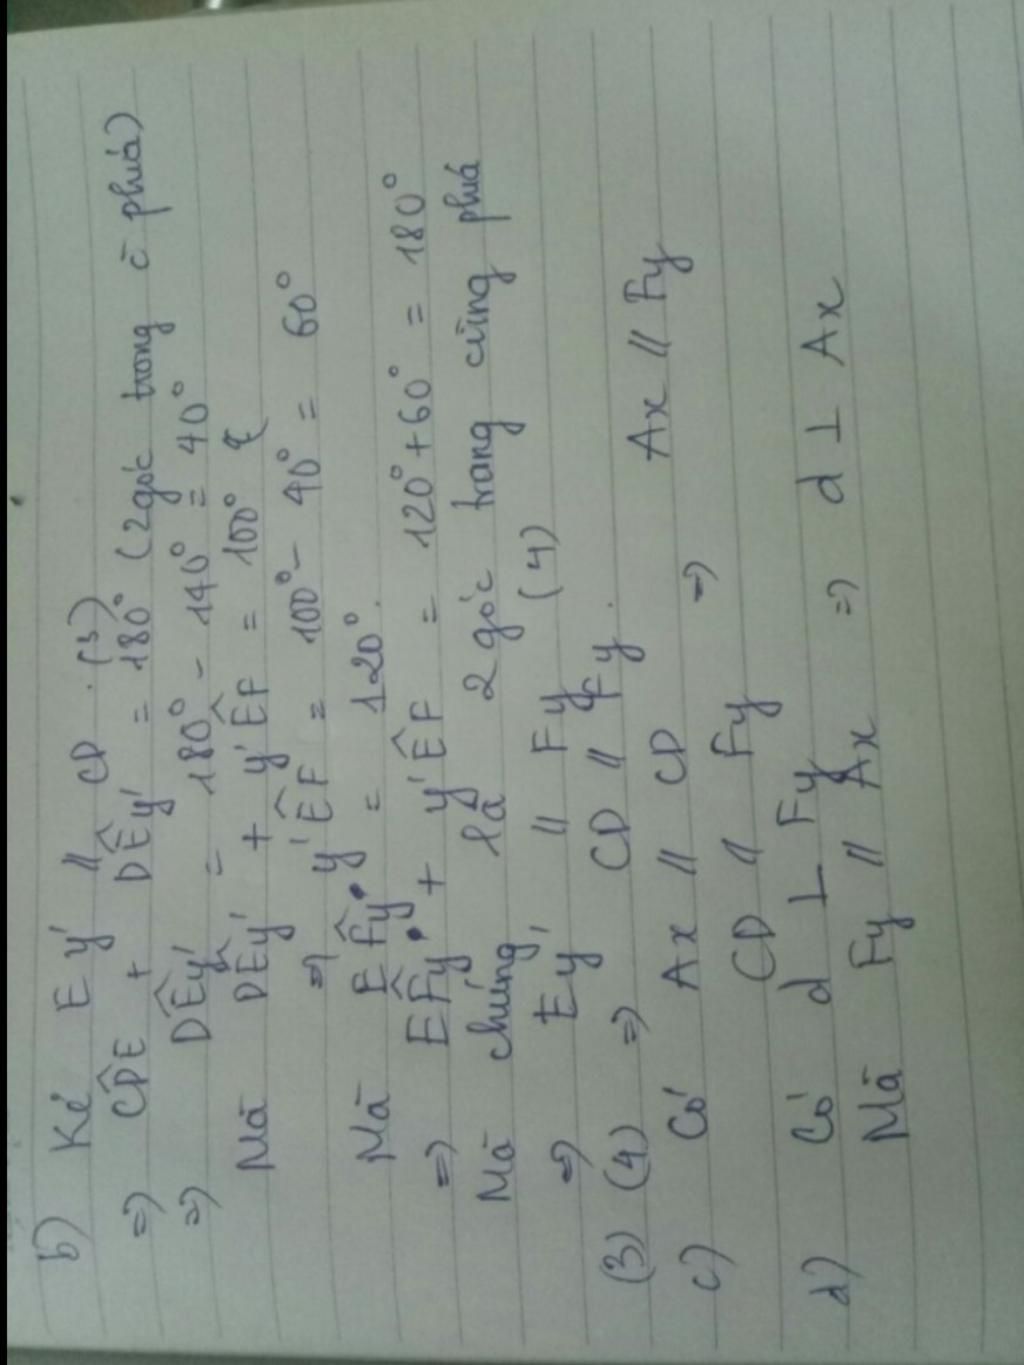 b) Kẻ Ey' // CD (3)
=> CD̂E + DÊy' = 180° (2 góc trong c̄ phía)
=> DÊy' = 180° - 140° = 40°
Mà DÊy' + y'ÊF = 100°
=> y'ÊF = 100° - 40° = 60°
Mà EF̂y = 120°.
=> EF̂y + y'ÊF = 120° + 60° = 180°
Mà chúng là 2 góc trong cùng phía
=> Ey' // Fy (4)
(3) (4) => CD // Fy.
c) Có Ax // CD => Ax // Fy
CD // Fy
d) Có d ⊥ Fy => d ⊥ Ax
Mà Fy // Ax